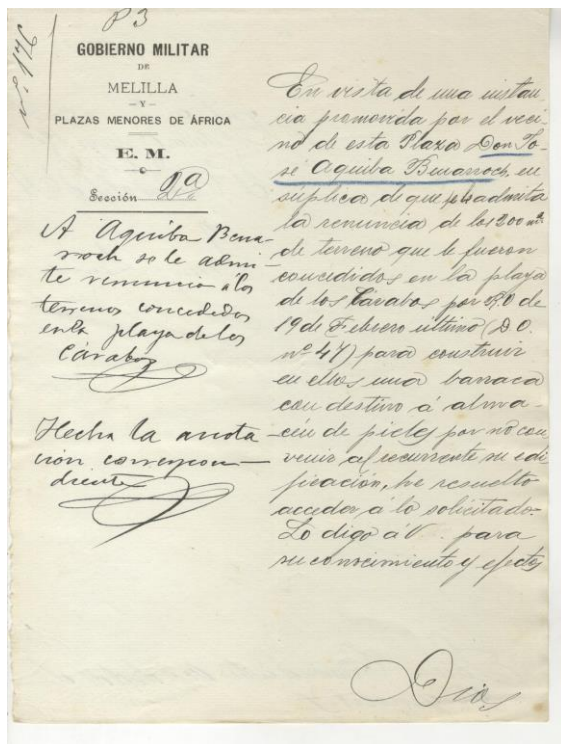 P3
nº 176
GOBIERNO MILITAR
DE
MELILLA
— Y —
PLAZAS MENORES DE ÁFRICA
E. M.
Sección 2ª
A Aquiba Bena-
rroch se le admi-
te renuncia a los
terrenos concedidos
en la playa de los
Cárabos
Hecha la anota-
ción correspon-
diente
En vista de una instan-
cia promovida por el veci-
no de esta Plaza Don Jo-
sé Aquiba Benarroch, en
súplica de que se le admita
la renuncia de los 200 m²
de terreno que le fueron
concedidos en la playa
de los Cárabos por R.O. de
19 de Febrero último (D.O.
nº 47) para construir
en ellos una barraca
con destino á alma-
cén de pieles por no con-
venir al recurrente su edi-
ficación, he resuelto
acceder á lo solicitado=
Lo digo á V. para
su conocimiento y efectos
Dios